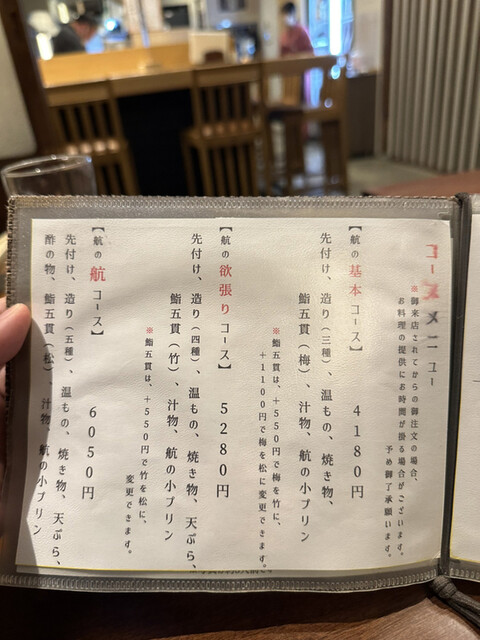 コースメニュー
※御来店されてからの御注文の場合、
お料理の提供にお時間が掛る場合がございます。
予め御了承願います。
【航の基本コース】 4180円
先付け、造り(三種)、温もの、焼き物、
鮨五貫(梅)、汁物、航の小プリン
※鮨五貫は、+550円で梅を竹に、
+1100円で梅を松に変更できます。
【航の欲張りコース】 5280円
先付け、造り(四種)、温もの、焼き物、天ぷら、
鮨五貫(竹)、汁物、航の小プリン
※鮨五貫は、+550円で竹を松に、
変更できます。
【航の航コース】 6050円
先付け、造り(五種)、温もの、焼き物、天ぷら、
酢の物、鮨五貫(松)、汁物、航の小プリン